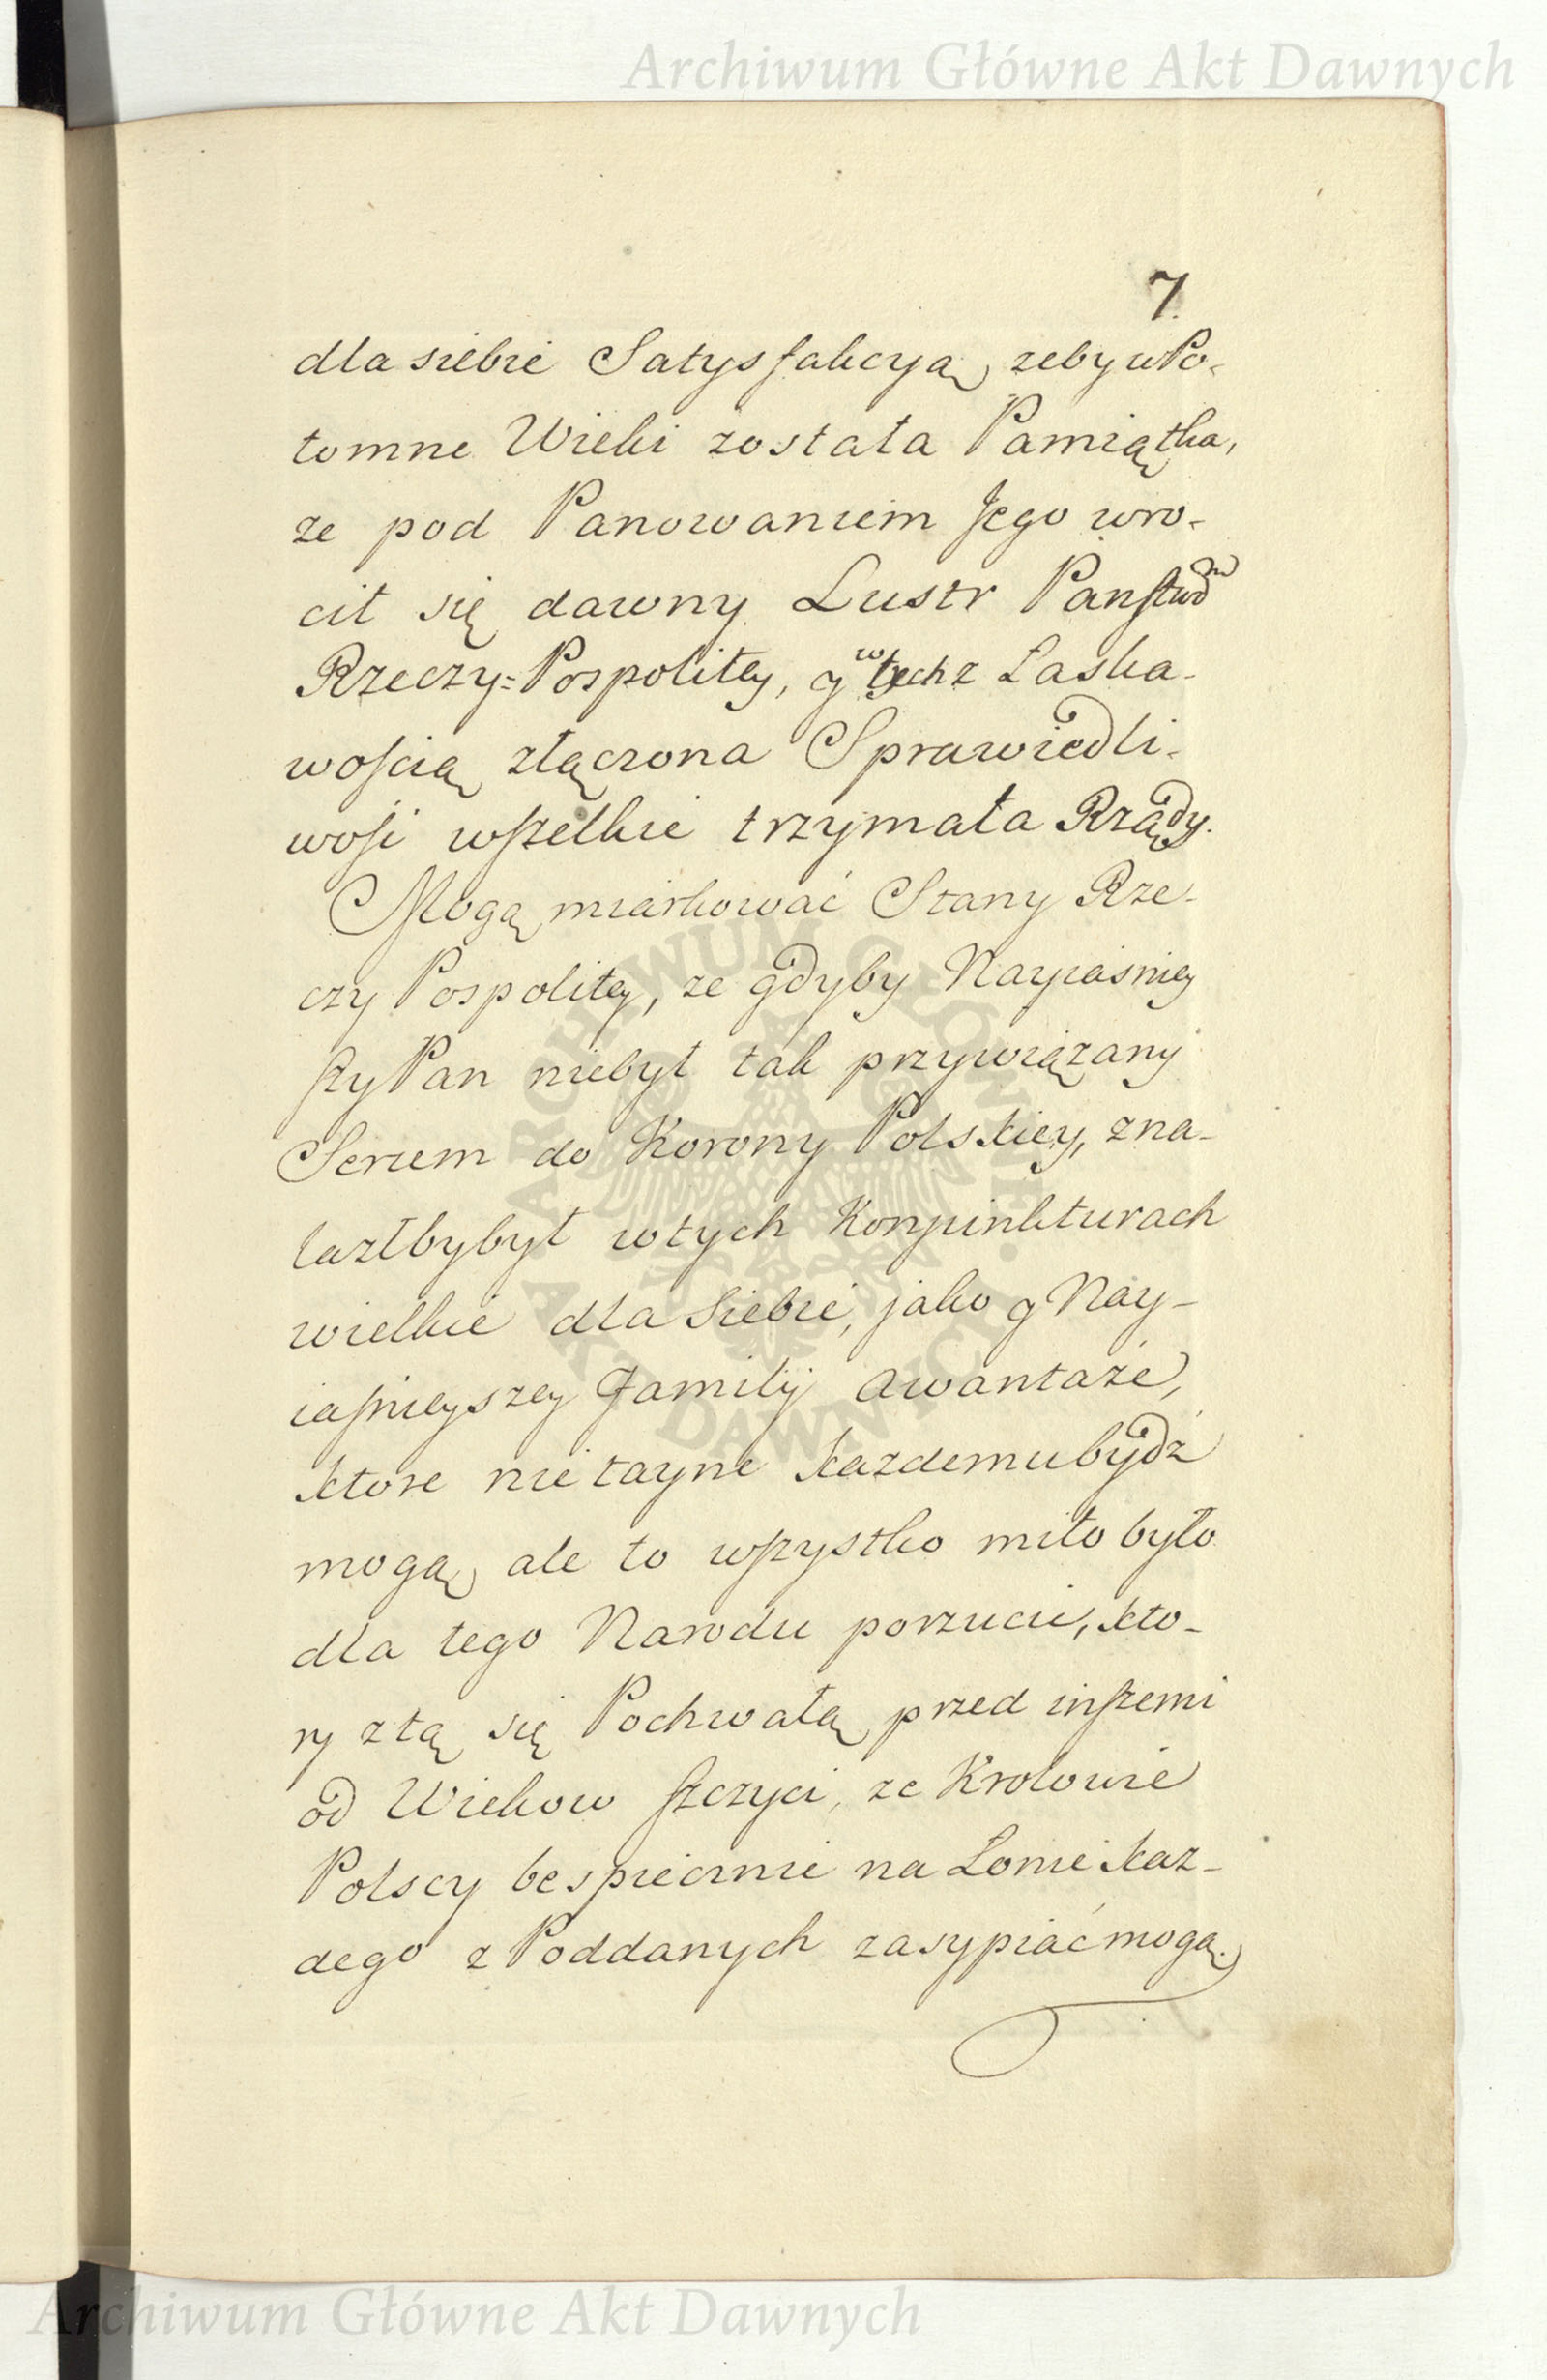 Archiwum Główne Akt Dawnych
7.
dla siebie Satysfakcyą, zeby w Po-
tomne Wieki zostala Pamiątka,
ze pod Panowaniem Jego wro-
cił się dawny Lustr Panstwo
Rzeczy=Pospolitey, y w tych z Laska-
wością złączona Sprawiedli-
wosi wszelkie trzymała Rządy.
Mogą miarkować Stany Rze-
czy Pospolitey, ze gdyby Nayiasniey
szy Pan niebył tak przywiązany
Sercem do Korony Polskiey, zna-
lazłby był w tych Konjunkturach
wielkie dla siebie, jako y Nay-
iasnieyszey Familij awantaże,
ktore nie tayne kazdemu bydź
mogą, ale to wszystko miło było
dla tego Narodu porzucić, kto-
ry ztą się Pochwałą przed inszemi
od Wiekow szczyci, ze Krolowie
Polscy bespiecznie na Lonie kaz-
dego z Poddanych zasypiać mogą.
ARCHIWUM GŁÓWNE AKT DAWNYCH
Archiwum Główne Akt Dawnych